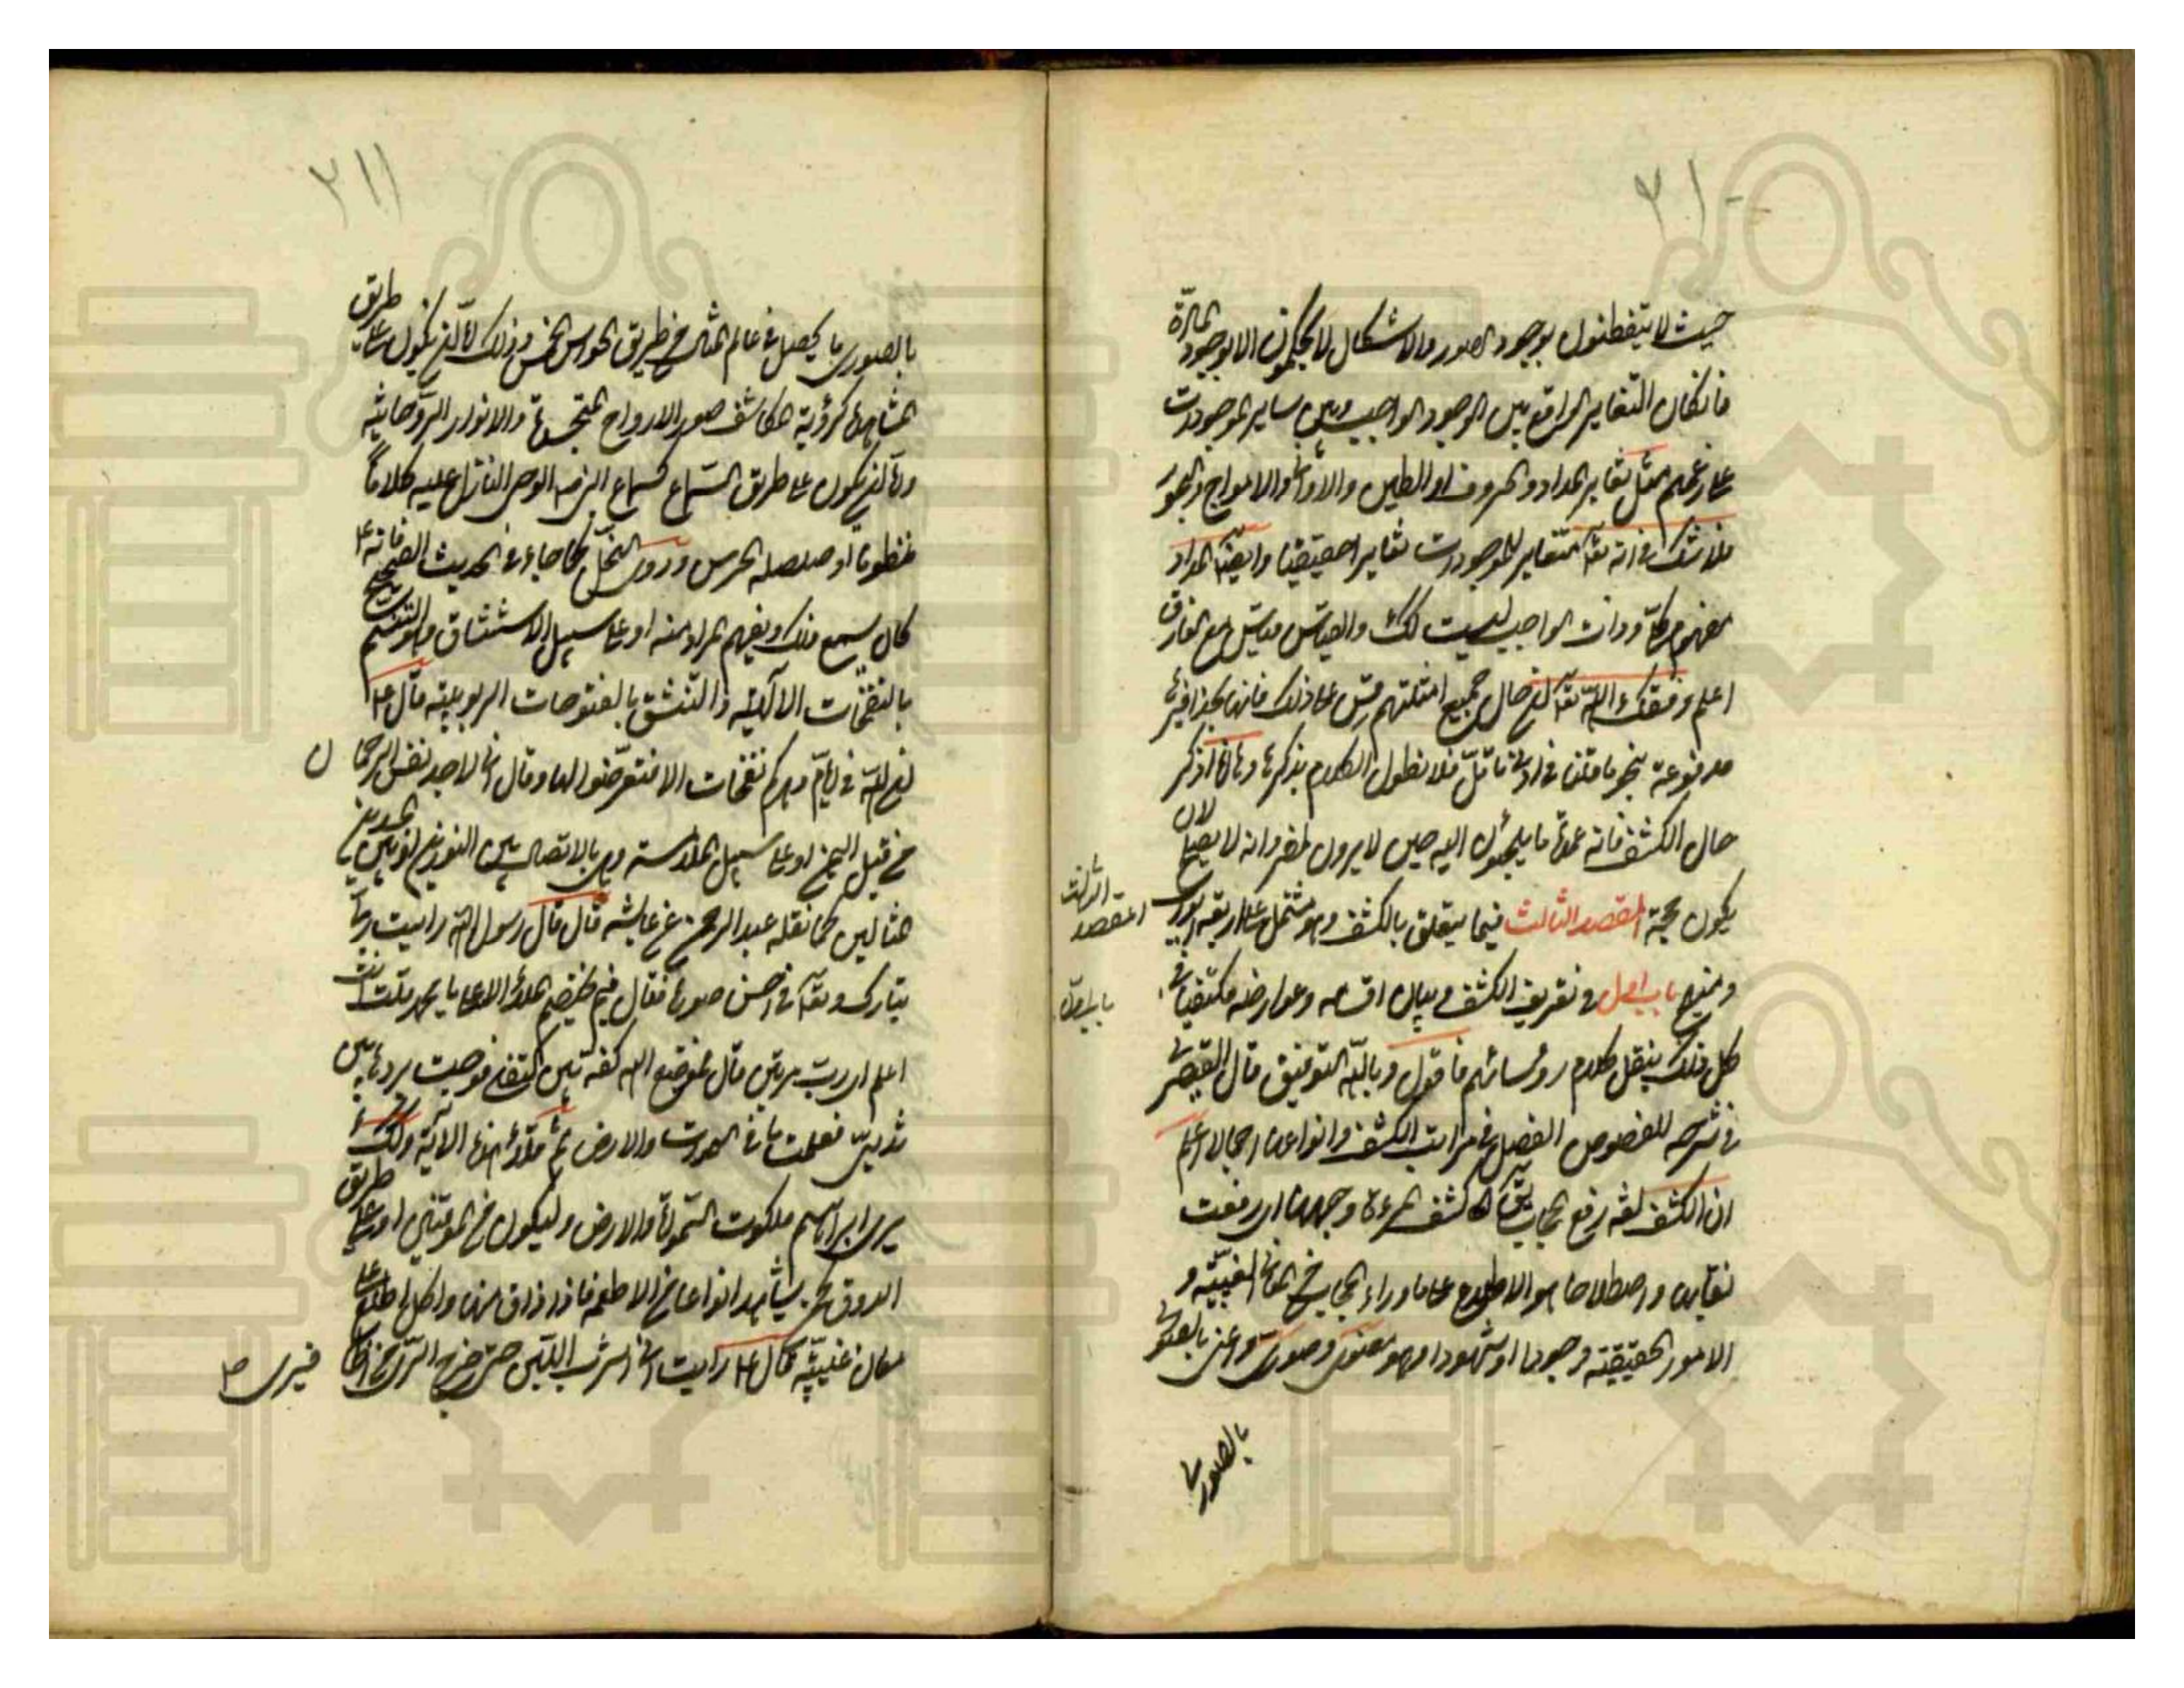 ٢١٠
حيث لا يتفطنون بوجود الصور والاشكال لا يحكمون الا بوجود المادّة
فان كان التغاير الواقع بين الوجود الواجب وبين ساير الموجودات
على زعمهم مثل تغاير المداد والحروف او الطين والاواني والامواج والبحر
فلا شك في انه تعا متغاير للموجودات تغايرا حقيقيا وايضا المداد
مفهوم مركّب وذات الواجب ليست كك والقياس قياس مع الفارق
اعلم وفقك اللّه تعا ان حال جميع امثلتهم قس على ذلك فانها بحذافيرها
مدفوعة بنحو ما قلنا في ادنى تامّل فلا نطول الكلام بذكرها وها انا اذكر
حال الكشف فانه عمدة ما يلجئون اليه حين لا يرون المفر وانه لا يصلح لان
يكون حجة المقصد الثالث فيما يتعلق بالكشف وهو مشتمل على اربعة ابواب
المقصد الثالث
ومنهج باب اول في تعريف الكشف وبيان اقسامه وعوارضه مكتفيا في
باب اول
كل ذلك بنقل كلام رؤسائهم فاقول وباللّه التوفيق قال القيصري
في شرحه للفصوص الفصل في مراتب الكشف وانواعها اجمالا اعلم
ان الكشف لغة رفع الحجاب يقال كشف المرءة وجهها اى رفعت
نقابها واصطلاحا هو الاطلاع على ما وراء الحجاب من المعاني الغيبيّة و
الامور الحقيقية وجودا او شهودا وهو معنوى وصورى واعنى بالصورى
بالصورى
٢١١
بالصورى ما يحصل في عالم المثال من طريق الحواس الخمس وذلك اما ان يكون على طريق
المشاهدة كرؤية المكاشف صور الارواح المتجسدة والانوار الروحانية
واما ان يكون على طريق السماع كسماع النبى الوحى النازل عليه كلاما
منظوما او صلصلة الجرس ودوى النحل كما جاء في الحديث الصحيح فانه ع
كان يسمع ذلك ويفهم المراد منه او على سبيل الاستنشاق وهو التنسم
بالنفحات الالهية والتنشق بالفتوحات الربوبية قال ع
ان للّه في ايام دهركم نفحات الا فتعرّضوا لها وقال انى لاجد نفس الرحمان
من قبل اليمن او على سبيل الملامسة وهى بالاتصال بين النورين او بين الجسدين
المثاليين كما نقله عبد الرحمن عن عايشه قال قال رسول اللّه رايت ربى
تبارك وتعا في احسن صورة فقال فيم يختصم الملاء الاعلى يا محمد قلت انت
اعلم اى رب مرتين قال فوضع اللّه كفه بين كتفى فوجدت بردها بين
ثدييّ فعلمت ما في السموات والارض ثم تلا هذه الآية وكذلك
نرى ابراهيم ملكوت السموات والارض وليكون من الموقنين او على طريق
الذوق كمن يشاهد انواعا من الاطعمة فاذا ذاق منها واكل اطلع على
معان غيبيّة قال ع رايت انى اشرب اللبن حتى خرج الرّى من اظفارى